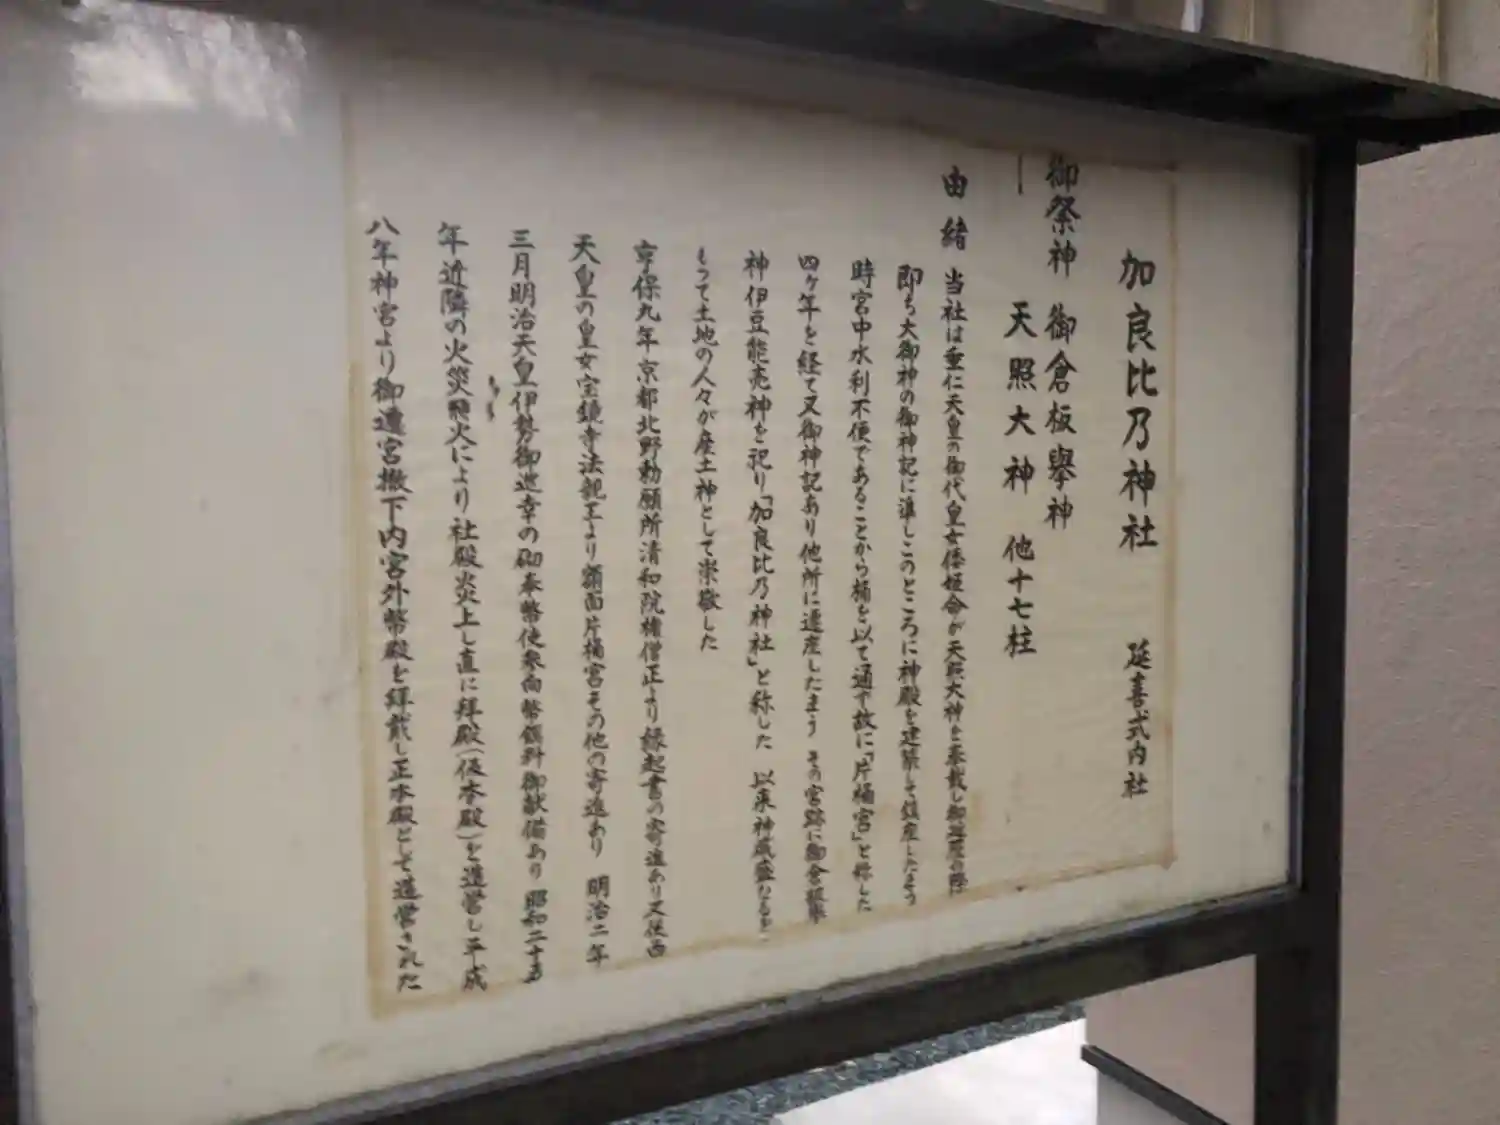 加良比乃神社 延喜式内社
御祭神 御倉板擧神
一 天照大神 他十七柱
由緒 当社は垂仁天皇の御代皇女倭姫命が天照大神を奉戴し御遷座の際
即ち大御神の御神記に準しこのところに神殿を建築して鎮座したまう
時宮中水利不便であることから樋を以て通す故に「片樋宮」と称した
四ヶ年を経て又御神記あり他所に遷座したまう その宮跡に御倉板擧
神伊豆能売神を祀り「加良比乃神社」と称した 以来神威盛なるを
もって土地の人々が産土神として崇敬した
享保九年京都北野勅願所清和院権僧正より縁起書の寄進あり又後西
天皇の皇女宝鏡寺法親王より額面片樋宮その他の寄進あり 明治二年
三月明治天皇伊勢御巡幸の砌奉幣使参向幣饌料御献備あり 昭和二十五
年近隣の火災類火により社殿炎上し直に拝殿(仮本殿)を造営し平成
八年神宮より御遷宮撤下内宮外幣殿を拝戴し正本殿として造営された